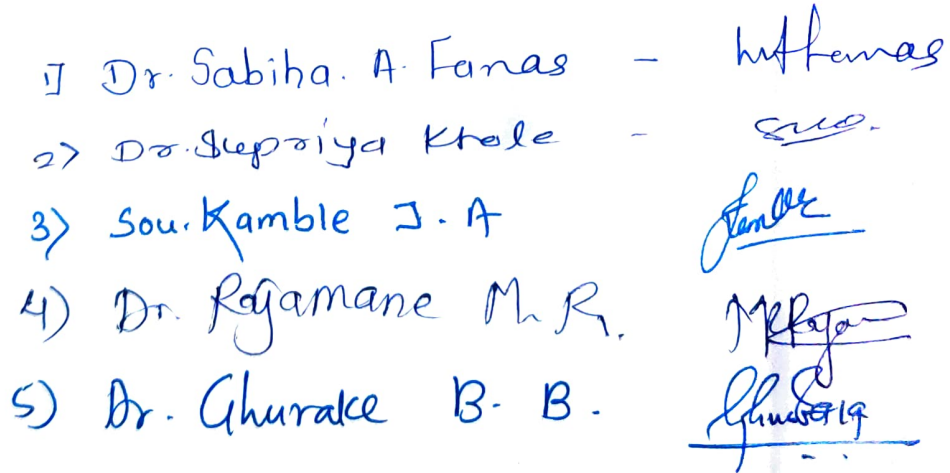 1) Dr. Sabiha. A. Fanas -
2) Dr. Supriya Khole -
3) Sou. Kamble J. A
4) Dr. Rajamane M. R.
5) Dr. Ghurake B. B.